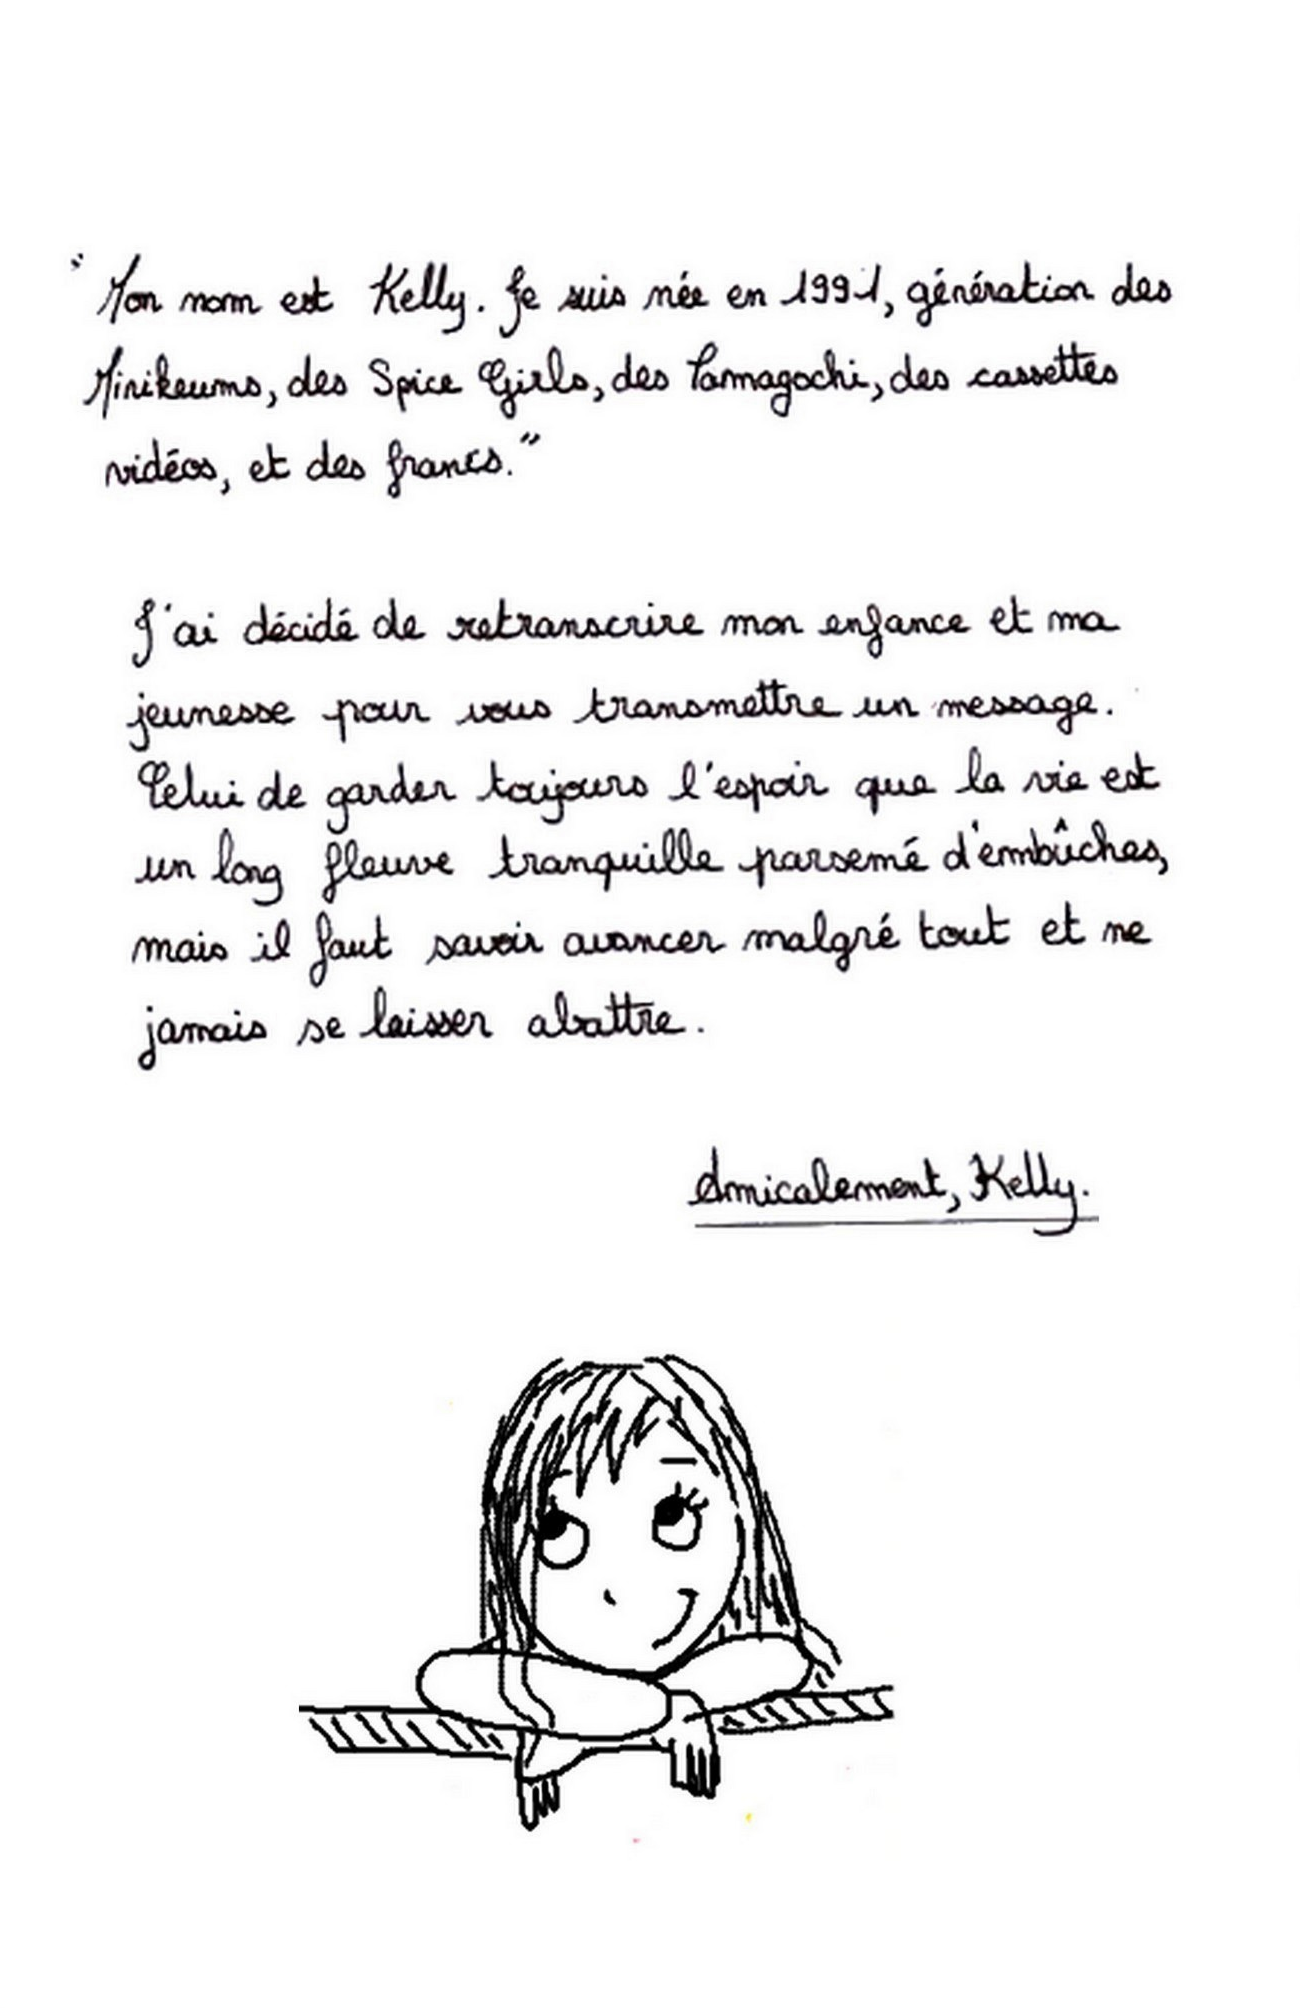 "Mon nom est Kelly. Je suis née en 1991, génération des
Minikeums, des Spice Girls, des Tamagochi, des cassettes
vidéos, et des francs."
J'ai décidé de retranscrire mon enfance et ma
jeunesse pour vous transmettre un message.
Celui de garder toujours l'espoir que la vie est
un long fleuve tranquille parsemé d'embûches,
mais il faut savoir avancer malgré tout et ne
jamais se laisser abattre.
Amicalement, Kelly.